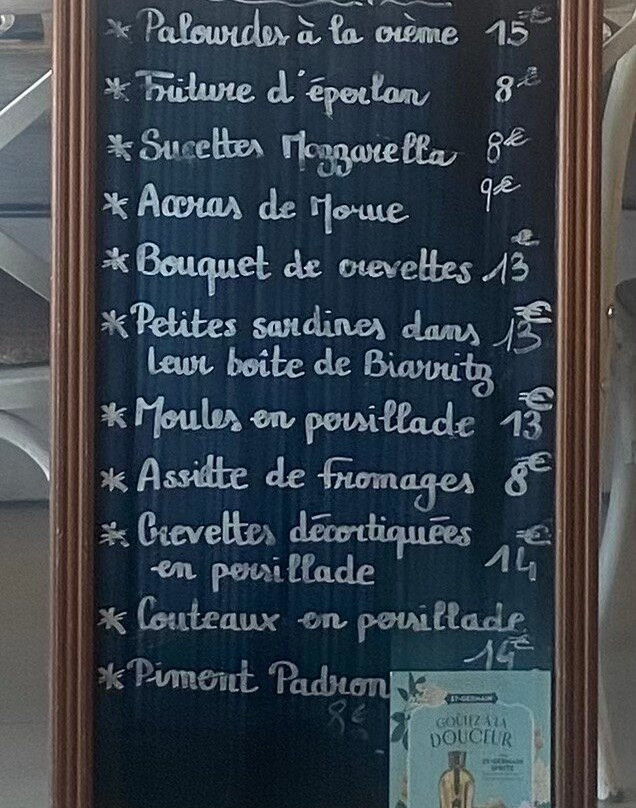 * Palourdes à la crème 15€
* Friture d'éperlan 8€
* Sucettes Mozzarella 8€
* Accras de Morue 9€
* Bouquet de crevettes 13€
* Petites sardines dans 13€
leur boîte de Biarritz
* Moules en persillade 13€
* Assiette de fromages 8€
* Crevettes décortiquées
en persillade 14€
* Couteaux en persillade
14€
* Piment Padron
8€
ST-GERMAIN
GOÛTEZ À LA
DOUCEUR
ST-GERMAIN
SPRITZ